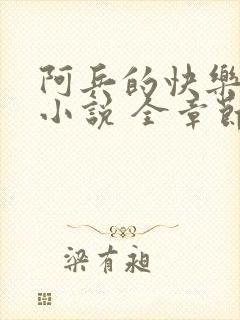 阿兵的快樂
小說 全章節
梁有昶